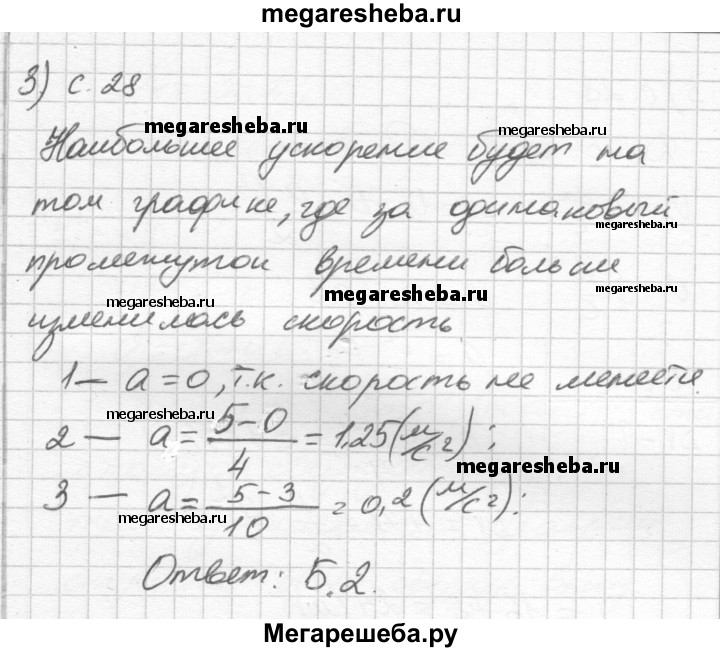 megaresheba.ru
3) с. 28
megaresheba.ru
megaresheba.ru
Наибольшее ускорение будет на
том графике, где за одинаковый
megaresheba.ru
промежуток времени больше
megaresheba.ru
megaresheba.ru
изменилась скорость
1 — a = 0, т.к. скорость не меняется
megaresheba.ru
2 — a = (5 - 0)/4 = 1.25 (м/с²);
megaresheba.ru
3 — a = (5 - 3)/10 = 0,2 (м/с²);
megaresheba.ru
Ответ: Б.2.
Мегарешеба.ру